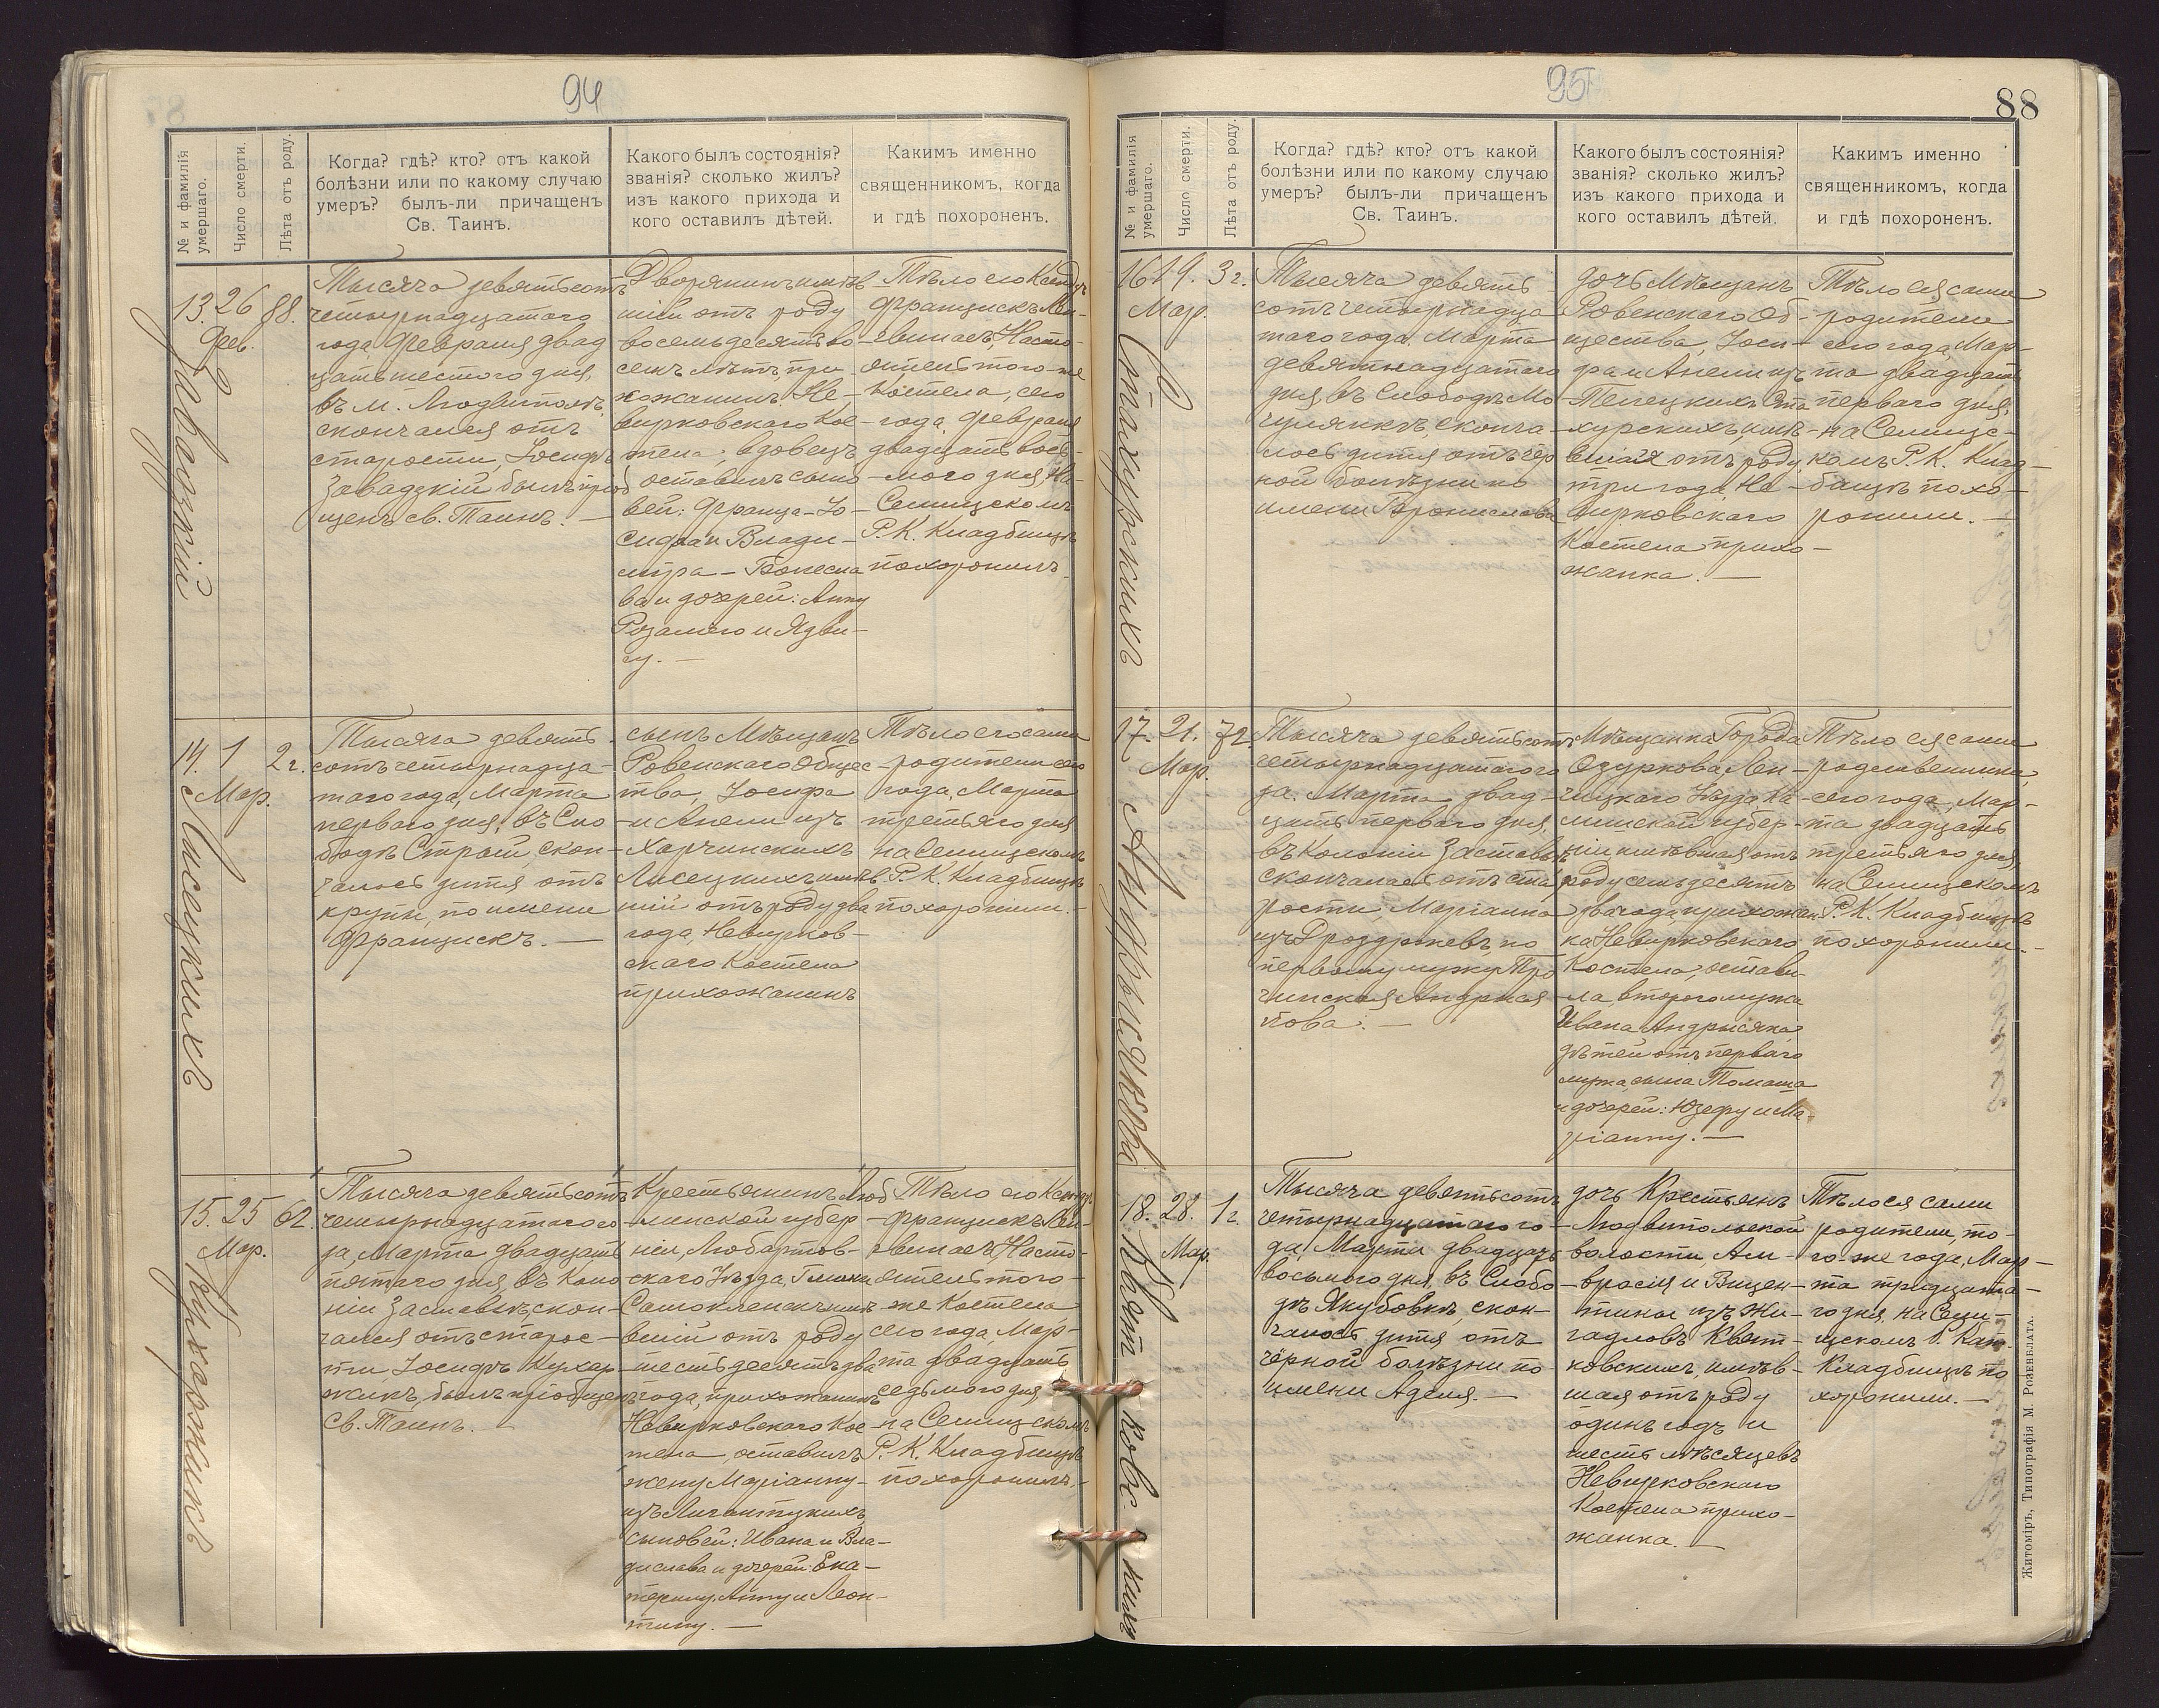 94
№ и фамилія умершаго.
Число смерти.
Лѣта отъ роду.
Когда? гдѣ? кто? отъ какой
болѣзни или по какому случаю
умеръ? былъ-ли причащенъ
Св. Таинъ.
Какого былъ состоянія?
званія? сколько жилъ?
изъ какого прихода и
кого оставилъ дѣтей.
Какимъ именно
священникомъ, когда
и гдѣ похороненъ.
13. 26 88.
Фев.
Завадзкій
Тысяча девятьсотъ
четырнадцатого
года Февраля двад
цать шестого дня,
въ м. Людвиполѣ,
скончался отъ
старости, Іосифъ
Завадзкій былъ приоб
щенъ св. Таинъ. —
Дворянинъ имѣв
шій отъ роду
восемьдесятъ во-
семь лѣтъ, при
хожанинъ Не-
вирковскаго Кос-
тела, вдовецъ
оставилъ сыно
вей: Франца-Іо-
сифа и Влади-
міра-Болесла
ва и дочерей: Анну
Розалію и Ядви-
гу. —
Тѣло его Ксендзъ
Францискъ
Насто-
ятель того-же
Костела, сего
года, Февраля
двадцать вось-
мого дня на
Селищскомъ
Р. К. Кладбищѣ
похоронилъ.
14. 1 2 г.
Мар.
Лисецкихъ
Тысяча девять-
сотъ четырнадца-
таго года, Марта
перваго дня, въ Сло
бодѣ Старой скон-
чалось дитя отъ
крупи, по имени
Францискъ. —
сынъ Мѣщанъ
Ровенскаго Общес-
тва, Іосифа
и Анели изъ
Харчинскихъ
Лисецкихъ имѣв-
шій отъ роду два
года, Невирков-
скаго Костела
прихожанинъ
Тѣло его сами
родители сего
года, Марта
третьяго дня
на Селищскомъ
Р. К. Кладбищѣ
похоронили. -
15. 25 62.
Мар.
Кухаржикъ
Тысяча девятьсотъ
четырнадцатаго го-
да, Марта двадцать
пятаго дня, въ Коло
ніи Заставьѣ, скон-
чался отъ старос-
ти, Іосифъ Кухар
жикъ, былъ пріобщенъ
Св. Таинъ. —
Крестьянинъ Люб
линской губер-
ніи, Любартов-
скаго Уѣзда, Гмины
Самоклески имѣ-
вшій отъ роду
шестьдесятъ два
года, прихожанинъ
Невирковскаго Кос
тела, оставилъ
жену Маріанну-
изъ
сыновей: Ивана и Вла-
дислава и дочерей: Ека-
терину, Анну и Леон-
тину. —
Тѣло его Ксендзъ
Францискъ
Насто-
ятель того-
же Костела
сего года, Мар-
та двадцать
седьмого дня,
на Селищскомъ
Р. К. Кладбищѣ
похоронилъ. -
95
88
№ и фамилія умершаго.
Число смерти.
Лѣта отъ роду.
Когда? гдѣ? кто? отъ какой
болѣзни или по какому случаю
умеръ? былъ-ли причащенъ
Св. Таинъ.
Какого былъ состоянія?
званія? сколько жилъ?
изъ какого прихода и
кого оставилъ дѣтей.
Какимъ именно
священникомъ, когда
и гдѣ похороненъ.
16. 19. 3 г.
Мар.
Стахурскихъ
Тысяча девять
сотъ четырнадца
таго года, Марта
девятнадцатаго
дня, въ Слободѣ Мо
чулянкѣ, сконча
лось дитя отъ чер
ной болѣзни по
имени Бронислава
дочь Мѣщанъ
Ровенскаго Об-
щества, Іоси-
фа и Анели изъ
Ста
хурскихъ, имѣ-
вшая отъ роду,
три года, Не-
вирковскаго
Костела прихо-
жанка. —
Тѣло ея сами
родители
сего года, Мар-
та двадцать
перваго дня,
на Селищс-
комъ Р. К. Клад-
бищѣ похо-
ронили. —
17. 21. 72.
Мар.
Андрысякова
Тысяча девятьсотъ
четырнадцатаго го
да. Марта двад-
цать перваго дня,
въ Колоніи Заставьѣ
скончалась отъ ста
рости, Маріанна
изъ по
первому мужу
Андрыся
кова. —
Мѣщанка Города
Озуркова Лен-
чицкаго Уѣзда Ка-
лишской губер-
ніи имѣвшая отъ
роду семьдесятъ
два года, прихожан
ка Невирковскаго
Костела, остави-
ла, второго мужа
Ивана Андрысяка,
дѣтей отъ перваго
мужа, сына Томаша
и дочерей: Юзефу и Ма-
ріанну. —
Тѣло ея сами
родственники,
сего года, Мар-
та двадцать
третьяго дня,
на Селищскомъ
Р. К. Кладбищѣ
похоронили. -
18. 28. 1 г.
Мар.
Квятковскихъ
Тысяча девятьсотъ
четырнадцатаго го-
да, Марта двадцать
восьмого дня, въ Слобо
дѣ Якубовкѣ, скон-
чалось дитя отъ
чорной болѣзни по
имени Аделя. —
дочь Крестьянъ
Людвипольской
волости, Ам-
вросія и Вицен-
тины изъ Жи-
гадловъ Квят-
ковскихъ, имѣв-
шая отъ роду
одинъ годъ и
шесть мѣсяцевъ
Невирковскаго
Костела прихо-
жанка. —
Тѣло ея сами
родители, то-
го-же года, Мар-
та тридцата-
го дня, на Сели-
щскомъ Р. Кат.
Кладбищѣ по
хоронили. —
Житоміръ, Типографія М. Розенблата.